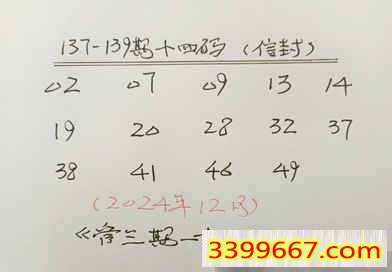 137-139期十四码(信封)
02 07 09 13 14
19 20 28 32 37
38 41 46 49
(2024年12月)
三期一
3399667.com